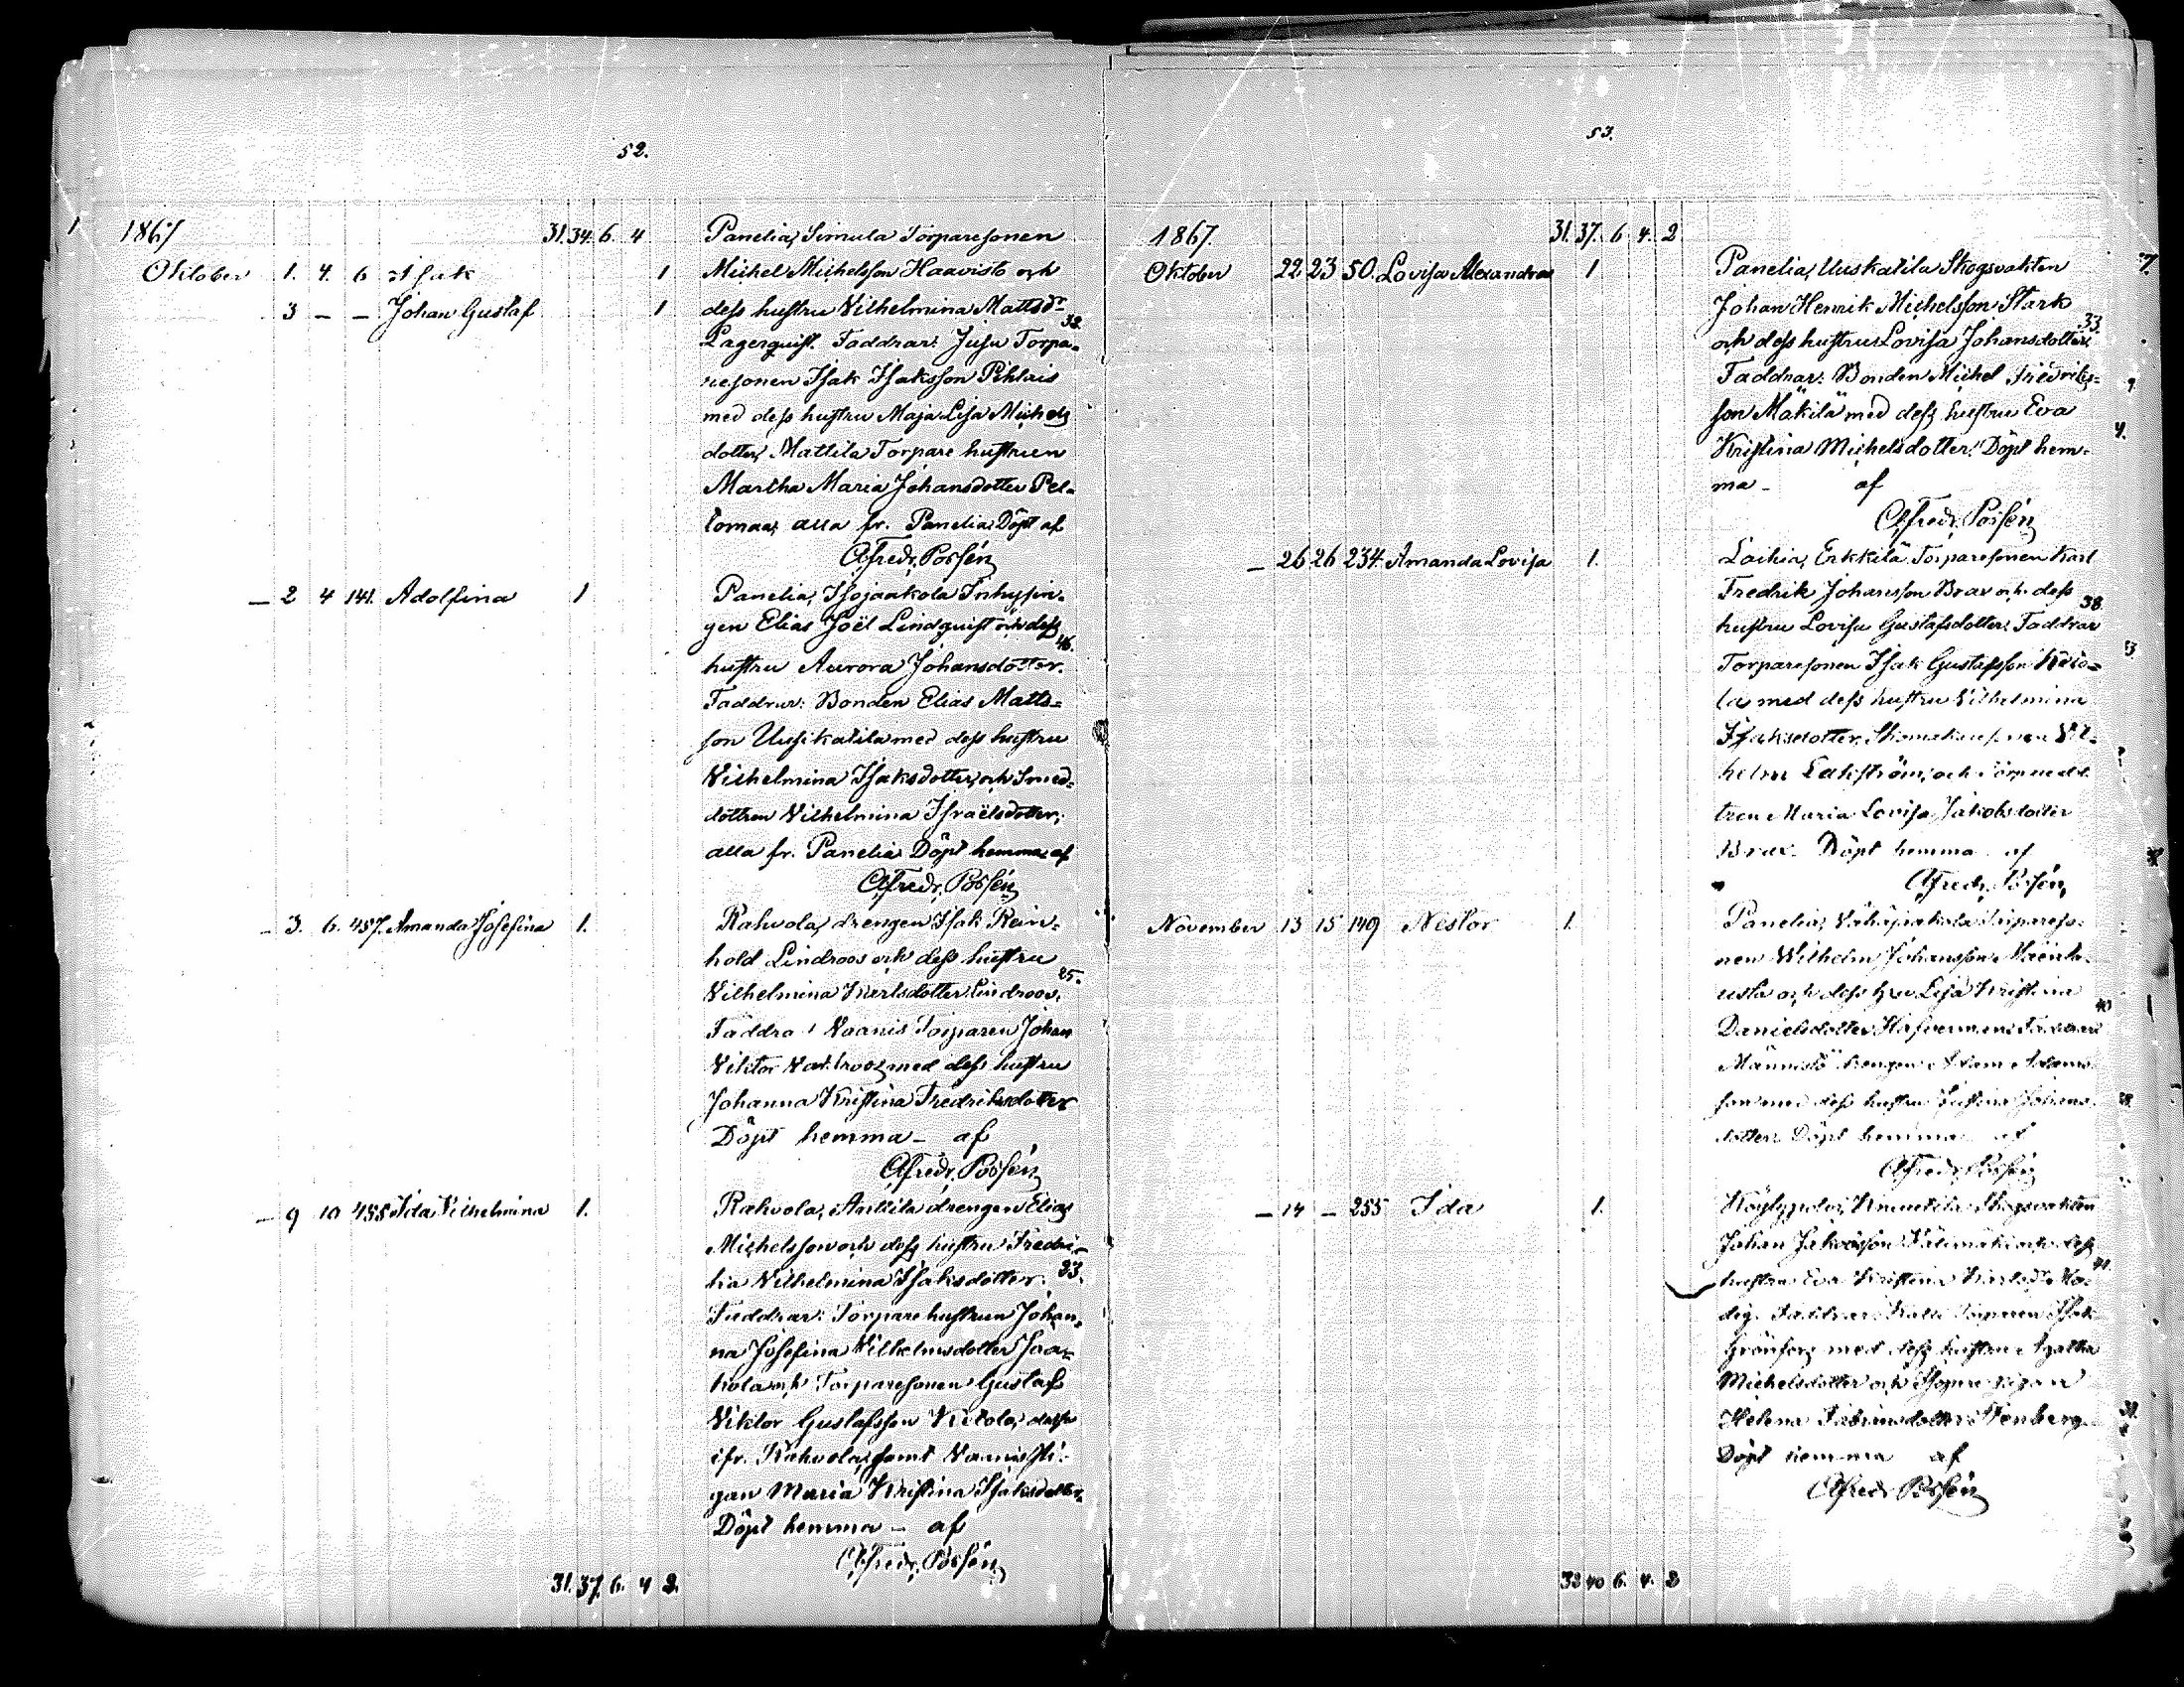 52.
1867 31. 34. 6. 4 Panelia, Simula Torparesonen
Oktober 1. 4. 6 Isak 1 Michel Michelsson Haavisto och
3 – – Johan Gustaf 1 dess hustru Vilhelmina Mattsdr
38.
Lagerquist. Faddrar: Juju Torpa-
resonen Isak Isaksson Pihlais
med dess hustru Maja Lisa Michels
dotter, Mattila Torpare hustrun
Martha Maria Johansdotter Pel-
tomaa, alla fr. Panelia. Döpt af
Alfredr. Possén
– 2 4 141. Adolfina 1 Panelia, Isojaakola Inhysin-
gen Elias Joël Lindquist och dess
46.
hustru Aurora Johansdotter.
Faddrar: Bonden Elias Matts-
son Uusikatila med dess hustru
Vilhelmina Isaksdotter, och Smed-
dottren Vilhelmina Israëlsdotter,
alla fr. Panelia Döpt hemma af
Alfredr. Possén
– 3. 6. 457. Amanda Josefina 1. Rahvola, drengen Isak Rein-
hold Lindroos och dess hustru
25.
Vilhelmina Karlsdotter Lindroos.
Faddra Vaanis Torparen Johan
Viktor med dess hustru
Johanna Kristina Fredriksdotter
Döpt hemma – af
Alfredr. Possén
– 9 10 455 Ida Vilhelmina 1. Rahvola, Anttila drengen Elias
Michelsson och dess hustru Fredri-
ka Vilhelmina Isaksdotter. 33.
Faddrar: Torpare hustrun Johan-
na Josefina Vilhelmsdotter Jaa-
kola och Torparesonen Gustaf
Viktor Gustafsson desse
ifr. Rahvola, samt Vaanis Pi-
gan Maria Kristina Isaksdotter.
Döpt hemma – af
Alfredr. Possén
31. 37. 6. 4 2.
53.
1867. 31. 37. 6 4. 2
Oktober 22 23 50. Lovisa Alexandra 1 Panelia, Uuskatila Skogsvakten
Johan Henrik Michelsson Stark
33.
och dess hustru Lovisa Johansdotter.
Faddrar: Bonden Michel Fredriks-
son Mäkilä med dess hustru Eva
Kristina Michelsdotter. Döpt hem-
ma – af
Alfredr. Possén
– 26 26 234. Amanda Lovisa 1. Laihia, Erkkilä Torparesonen Karl
Fredrik Johansson Brax och dess
38.
hustru Lovisa Gustafsdotter. Faddrar
Torparesonen Isak Gustafsson
la med dess hustru Vilhelmina
Isaksdotter, Vil-
helm och
tren Maria Lovisa Jakobsdotter
Brax. Döpt hemma af
Alfredr. Possén
November 13 15 149 Nestor 1. Panelia, Vähäjaakola Torpareso-
nen Wilhelm Johansson
och dess hru Lisa Kristina
40
Danielsdotter
Männistö drengen Adam Adams-
son med dess hustru Johans-
dotter. Döpt hemma af
Alfredr. Possén
– 14 – 255 Ida 1. Köylypolvi, Skogsvakten
Johan Jakobsson och dess
41.
hustru Eva Kristina Karlsdr
Faddrar: Torparen Isak
Grönfors med dess hustru Agatha
Michelsdotter och
Helena Fabiansdotter Stenberg.
Döpt hemma af
Alfredr. Possén
32 40 6. 4. 2